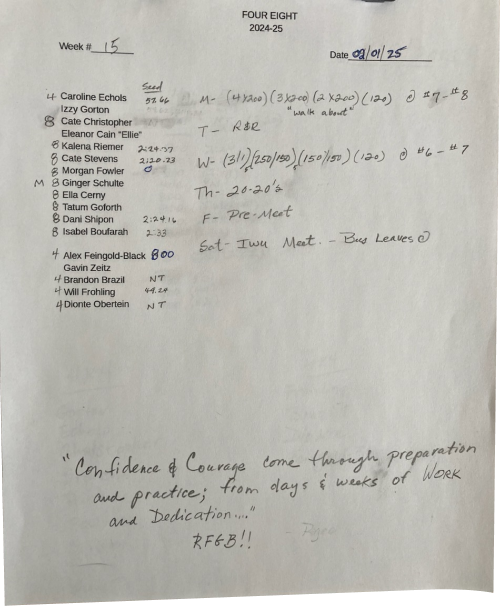 FOUR EIGHT
2024-25
Week # 15
Date 02/01/25
Seed
4 Caroline Echols 57.66
Izzy Gorton
8 Cate Christopher
Eleanor Cain "Ellie"
8 Kalena Riemer 2:24.37
8 Cate Stevens 2:20.23
8 Morgan Fowler
M 8 Ginger Schulte
8 Ella Cerny
8 Tatum Goforth
8 Dani Shipon 2:24.16
8 Isabel Boufarah 2:33
4 Alex Feingold-Black 800
Gavin Zeitz
4 Brandon Brazil NT
4 Will Frohling 49.24
4 Dionte Obertein NT
M- (4x200) (3x200) (2x200) (120) @ #7-#8
"walk about"
T- R&R
W- (3/1) (250/150) (150/150) (120) @ #6-#7
Th- 20-20's
F- Pre-Meet
Sat- IWU Meet. - Bus Leaves @
"Confidence & Courage come through preparation
and practice; from days & weeks of WORK
and Dedication..."
RFGB!!